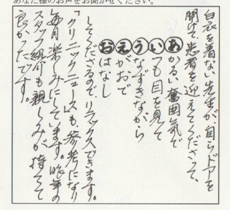 あなた様のお声をお聞かせください。
白衣を着ない先生が、自らドアを
開けて、患者を迎えてくださって、
あかるい雰囲気で
いつも目を見て
うなずきながら
えがおで
おはなし
してくださるのでリラックスできます。
「クリニックニュース」も参考になり
毎月楽しみにしています。昨年の
スタッフ紹介も親しみが持てて
良かったです。